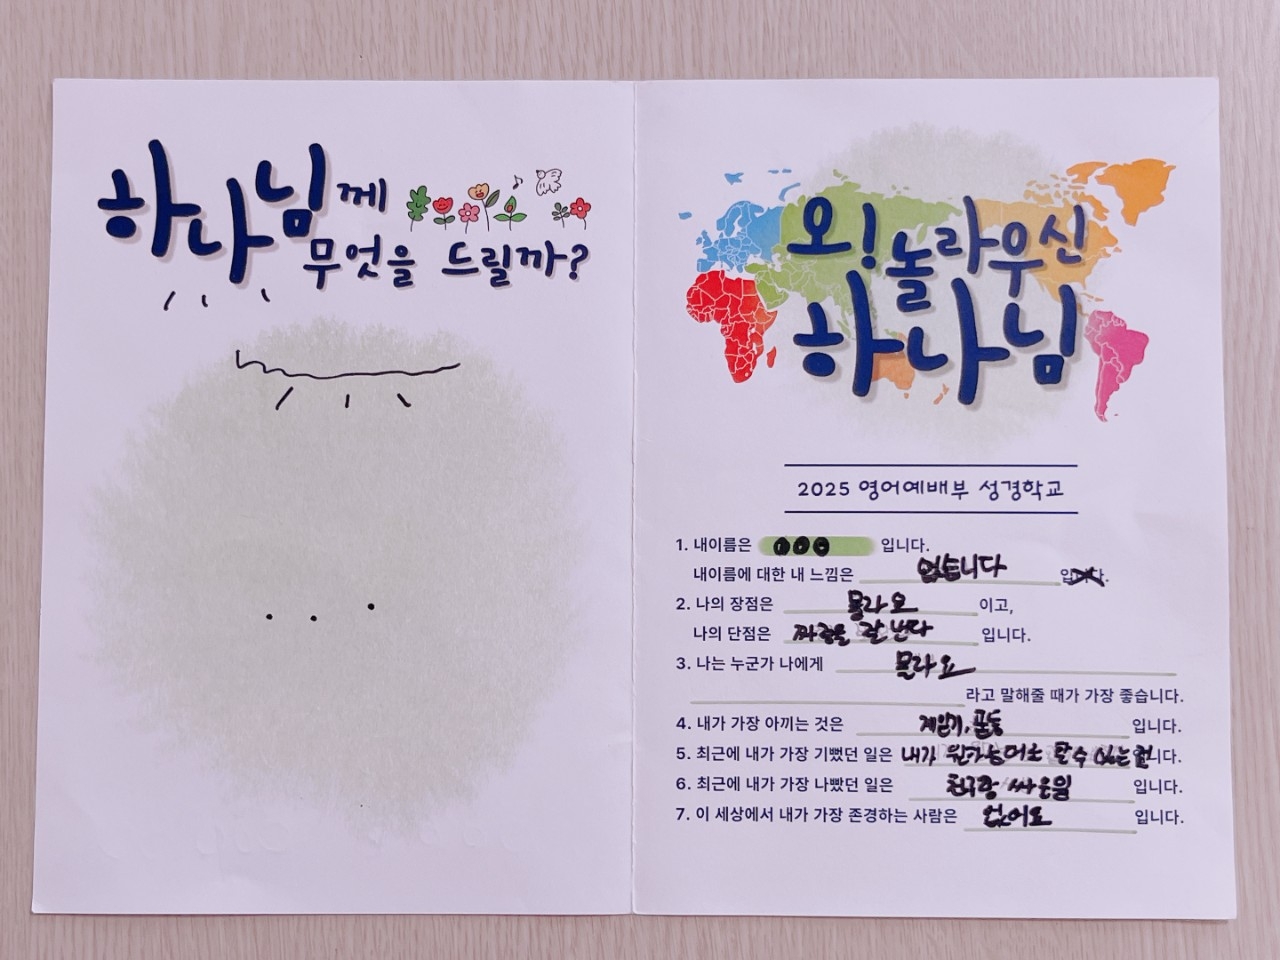 하나님께
무엇을 드릴까?
오! 놀라우신
하나님
2025 영어예배부 성경학교
1. 내이름은 000 입니다.
내이름에 대한 내 느낌은 없습니다 입니다.
2. 나의 장점은 몰라요 이고,
나의 단점은 짜증을 잘 낸다 입니다.
3. 나는 누군가 나에게 몰라요
라고 말해줄 때가 가장 좋습니다.
4. 내가 가장 아끼는 것은 입니다.
5. 최근에 내가 가장 기뻤던 일은 내가 입니다.
6. 최근에 내가 가장 나빴던 일은 친구랑 싸운일 입니다.
7. 이 세상에서 내가 가장 존경하는 사람은 없어요 입니다.